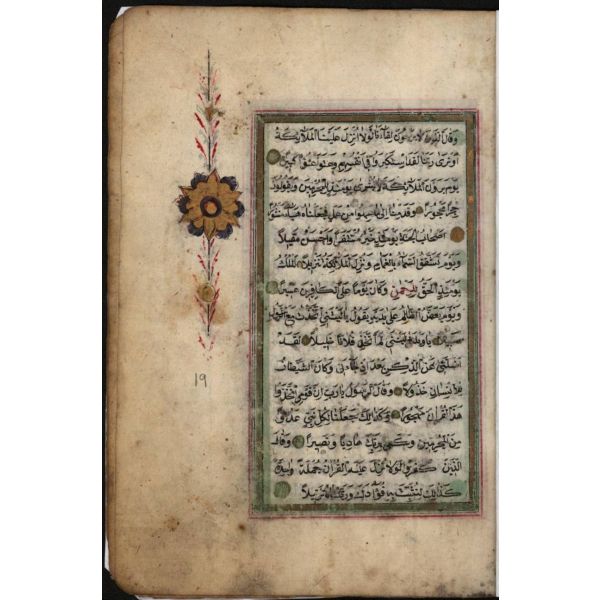 وقال الذين لا يرجون لقاءنا لولا انزل علينا الملائكة
او نرى ربنا لقد استكبروا في انفسهم وعتوا عتوا كبيرا
يوم يرون الملائكة لا بشرى يومئذ للمجرمين ويقولون
حجرا محجورا وقدمنا الى ما عملوا من عمل فجعلناه هباء منثورا
اصحاب الجنة يومئذ خير مستقرا واحسن مقيلا
ويوم تشقق السماء بالغمام ونزل الملائكة تنزيلا الملك
يومئذ الحق للرحمن وكان يوما على الكافرين عسيرا
ويوم يعض الظالم على يديه يقول يا ليتني اتخذت مع الرسول
سبيلا يا ويلتى ليتني لم اتخذ فلانا خليلا لقد
اضلني عن الذكر بعد اذ جاءني وكان الشيطان
للانسان خذولا وقال الرسول يا رب ان قومي اتخذوا
هذا القران مهجورا وكذلك جعلنا لكل نبي عدوا
من المجرمين وكفى بربك هاديا ونصيرا وقال
الذين كفروا لولا نزل عليه القران جملة واحدة
كذلك لنثبت به فؤادك ورتلناه ترتيلا
19